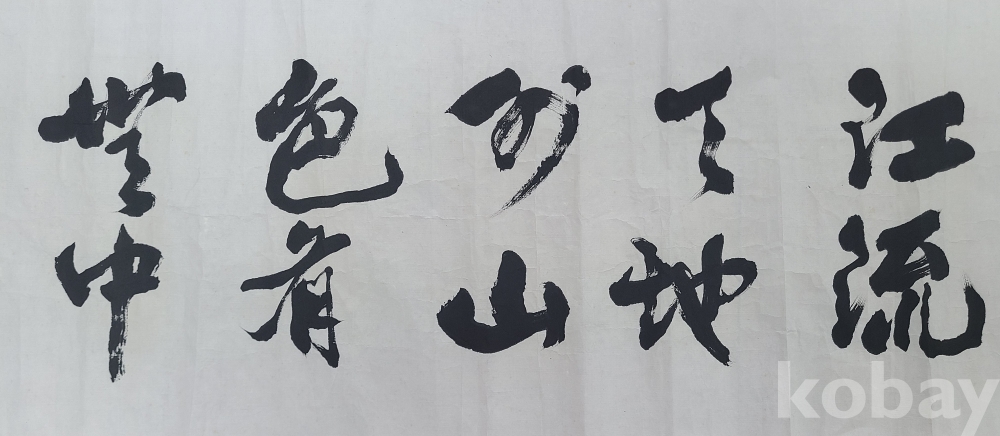 江流
天地
外山
色有
無中
kobay